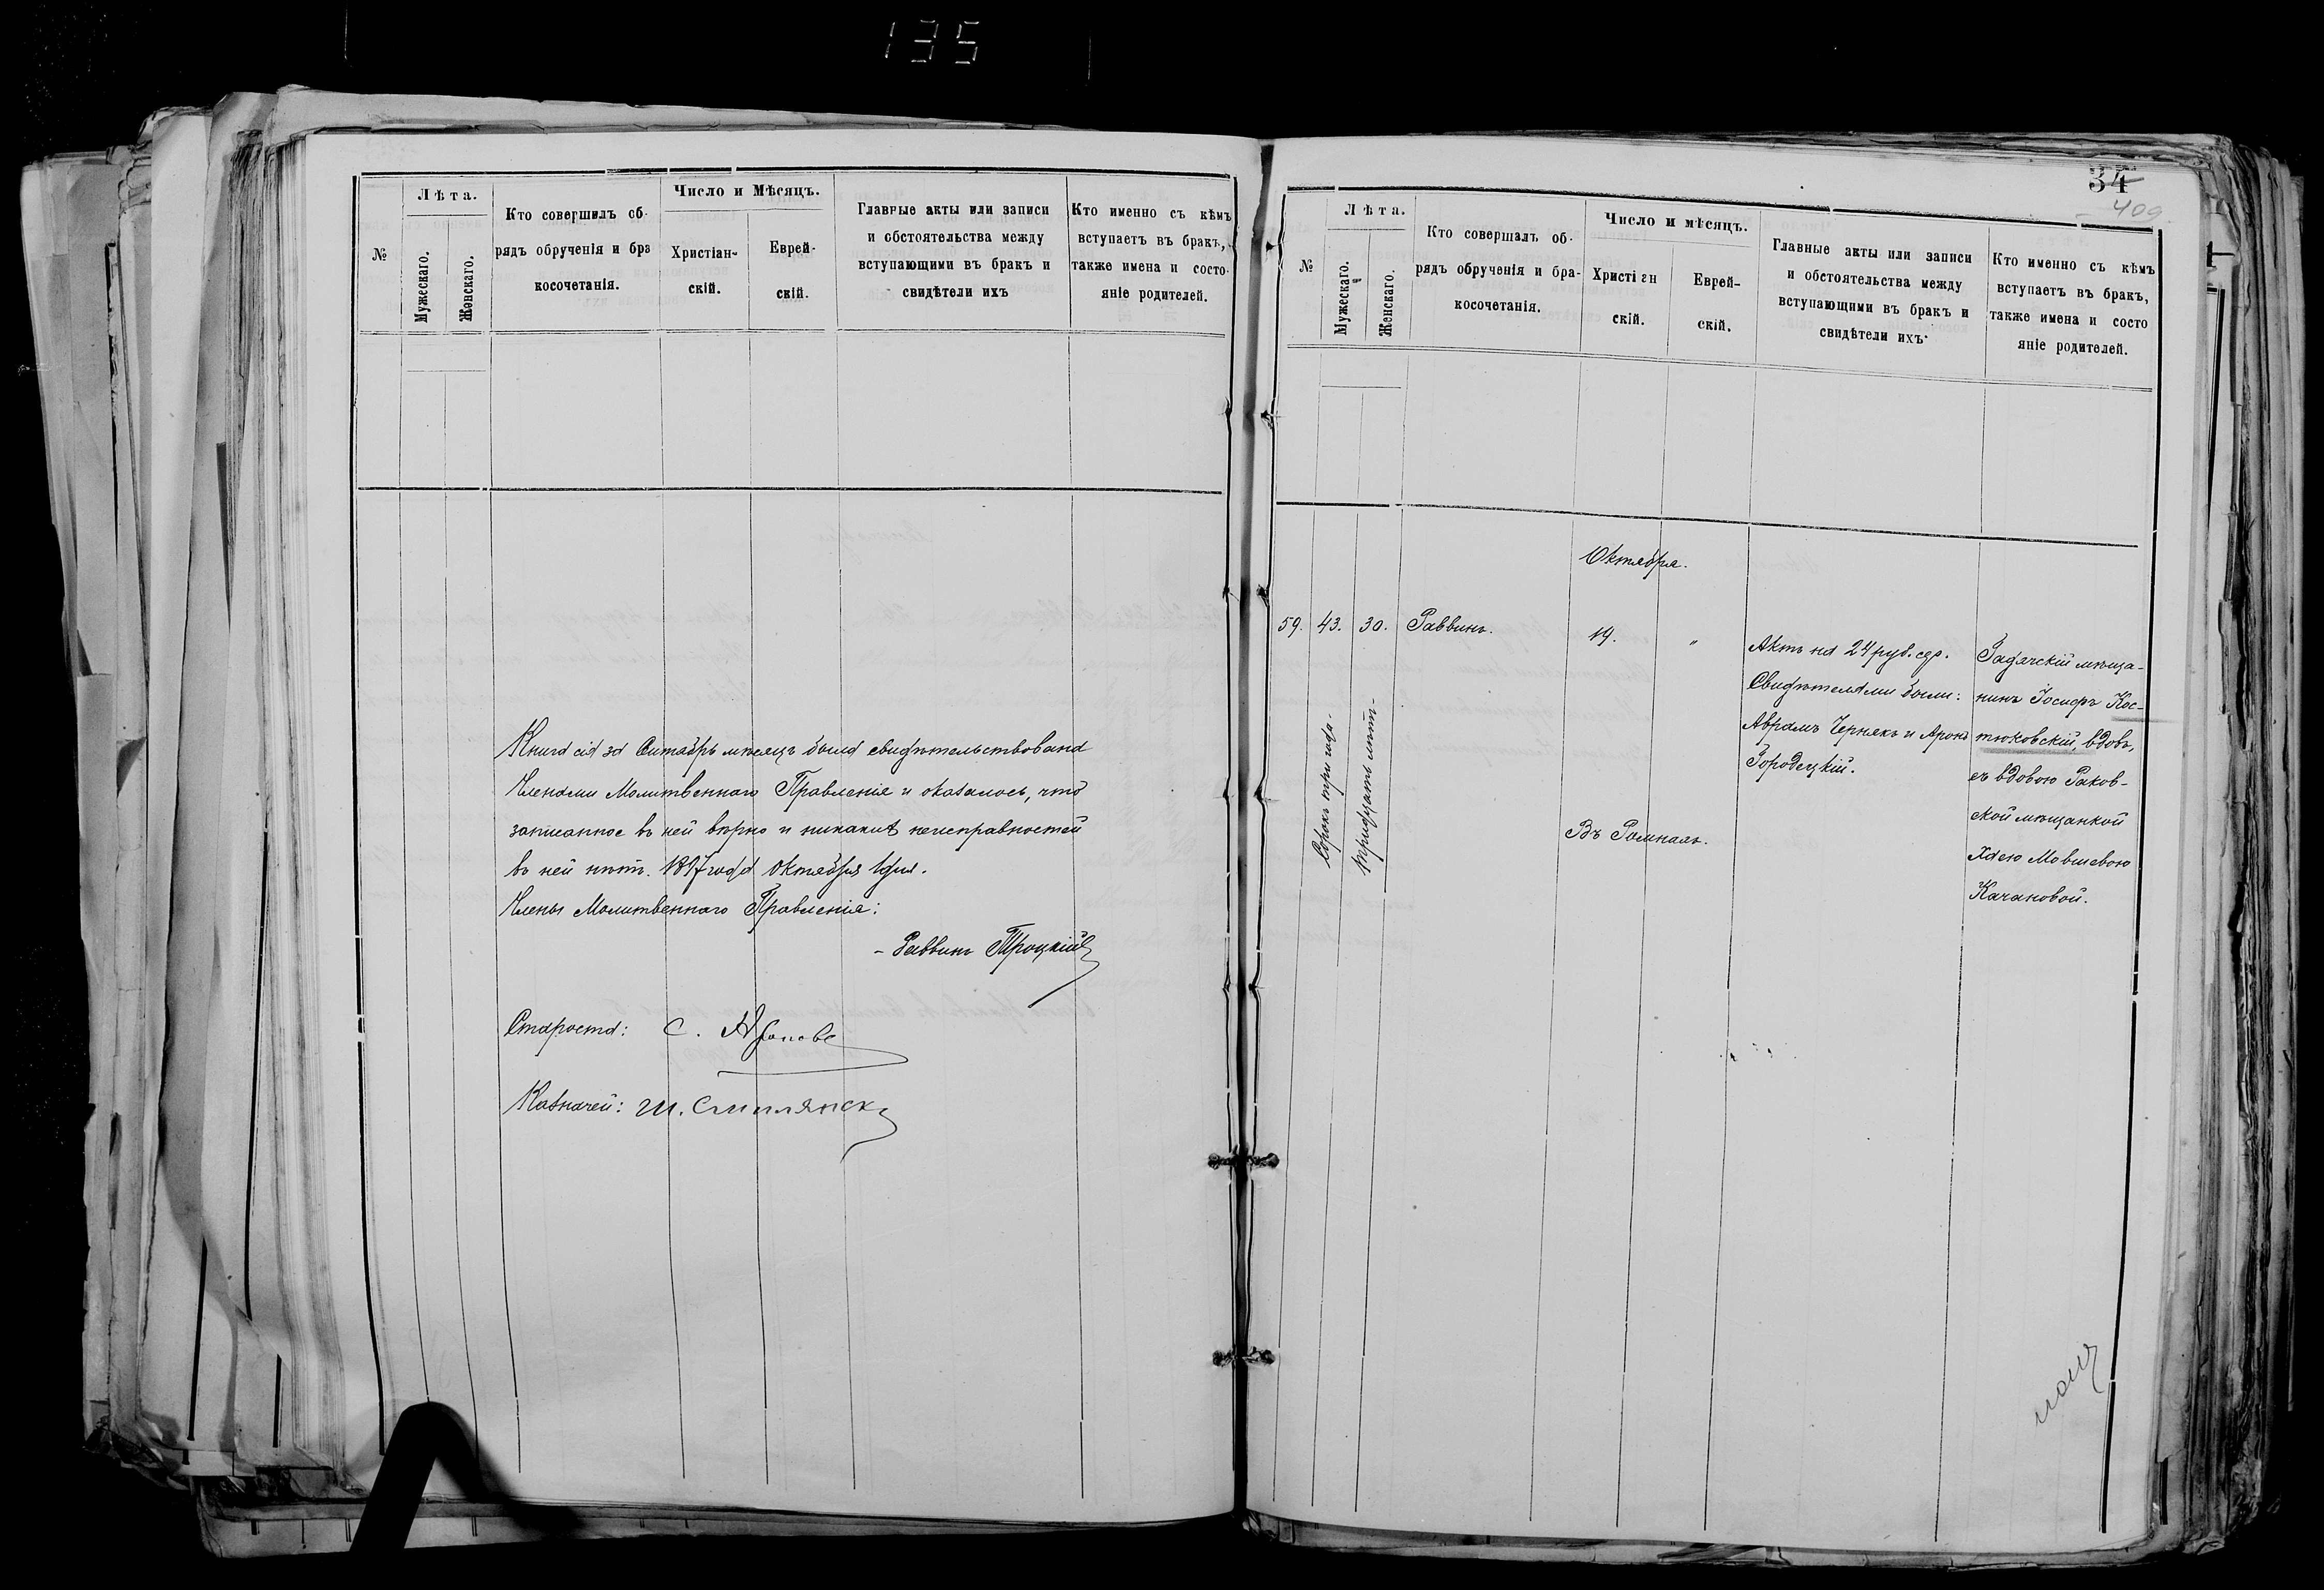 135
№
Лѣта.
Мужескаго.
Женскаго.
Кто совершилъ об-
рядъ обрученія и бра
косочетанія.
Число и Мѣсяцъ.
Христіан-
скій.
Еврей-
скій.
Главные акты или записи
и обстоятельства между
вступающими въ бракъ и
свидѣтели ихъ
Кто именно съ кѣмъ
вступаетъ въ бракъ,
также имена и состо-
яніе родителей.
Книга сія за Сентябрь мѣсяцъ была свидѣтельствована
Членами Молитвеннаго Правленія и оказалось, что
записанное въ ней вѣрно и никакихъ неисправностей
въ ней нѣтъ. 1897 года Октября 1 дня.
Члены Молитвеннаго Правленія:
- Раввинъ Троцкій
Староста: С.
Казначей: Ш. Смилянск
34
409
№
Лѣта.
Мужескаго.
Женскаго.
Кто совершалъ об-
рядъ обрученія и бра-
косочетанія.
Число и мѣсяцъ.
Христі ан
скій.
Еврей-
скій.
Главные акты или записи
и обстоятельства между
вступающими въ бракъ и
свидѣтели ихъ.
Кто именно съ кѣмъ
вступаетъ въ бракъ,
также имена и состо
яніе родителей.
Октября.
59. 43. 30. Раввинъ. 19. "
Сорокъ три года.
тридцать лѣтъ.
Въ Ромнахъ.
Актъ на 24 руб. сер.
Свидѣтелями были:
Аврамъ Чернякъ и Аронъ
Городецкій.
Гадячскій мѣща-
нинъ Іосифъ Кос-
тюковскій, вдовъ,
съ вдовою Раков-
ской мѣщанкой
Хаею Мовшевою
Качановой.